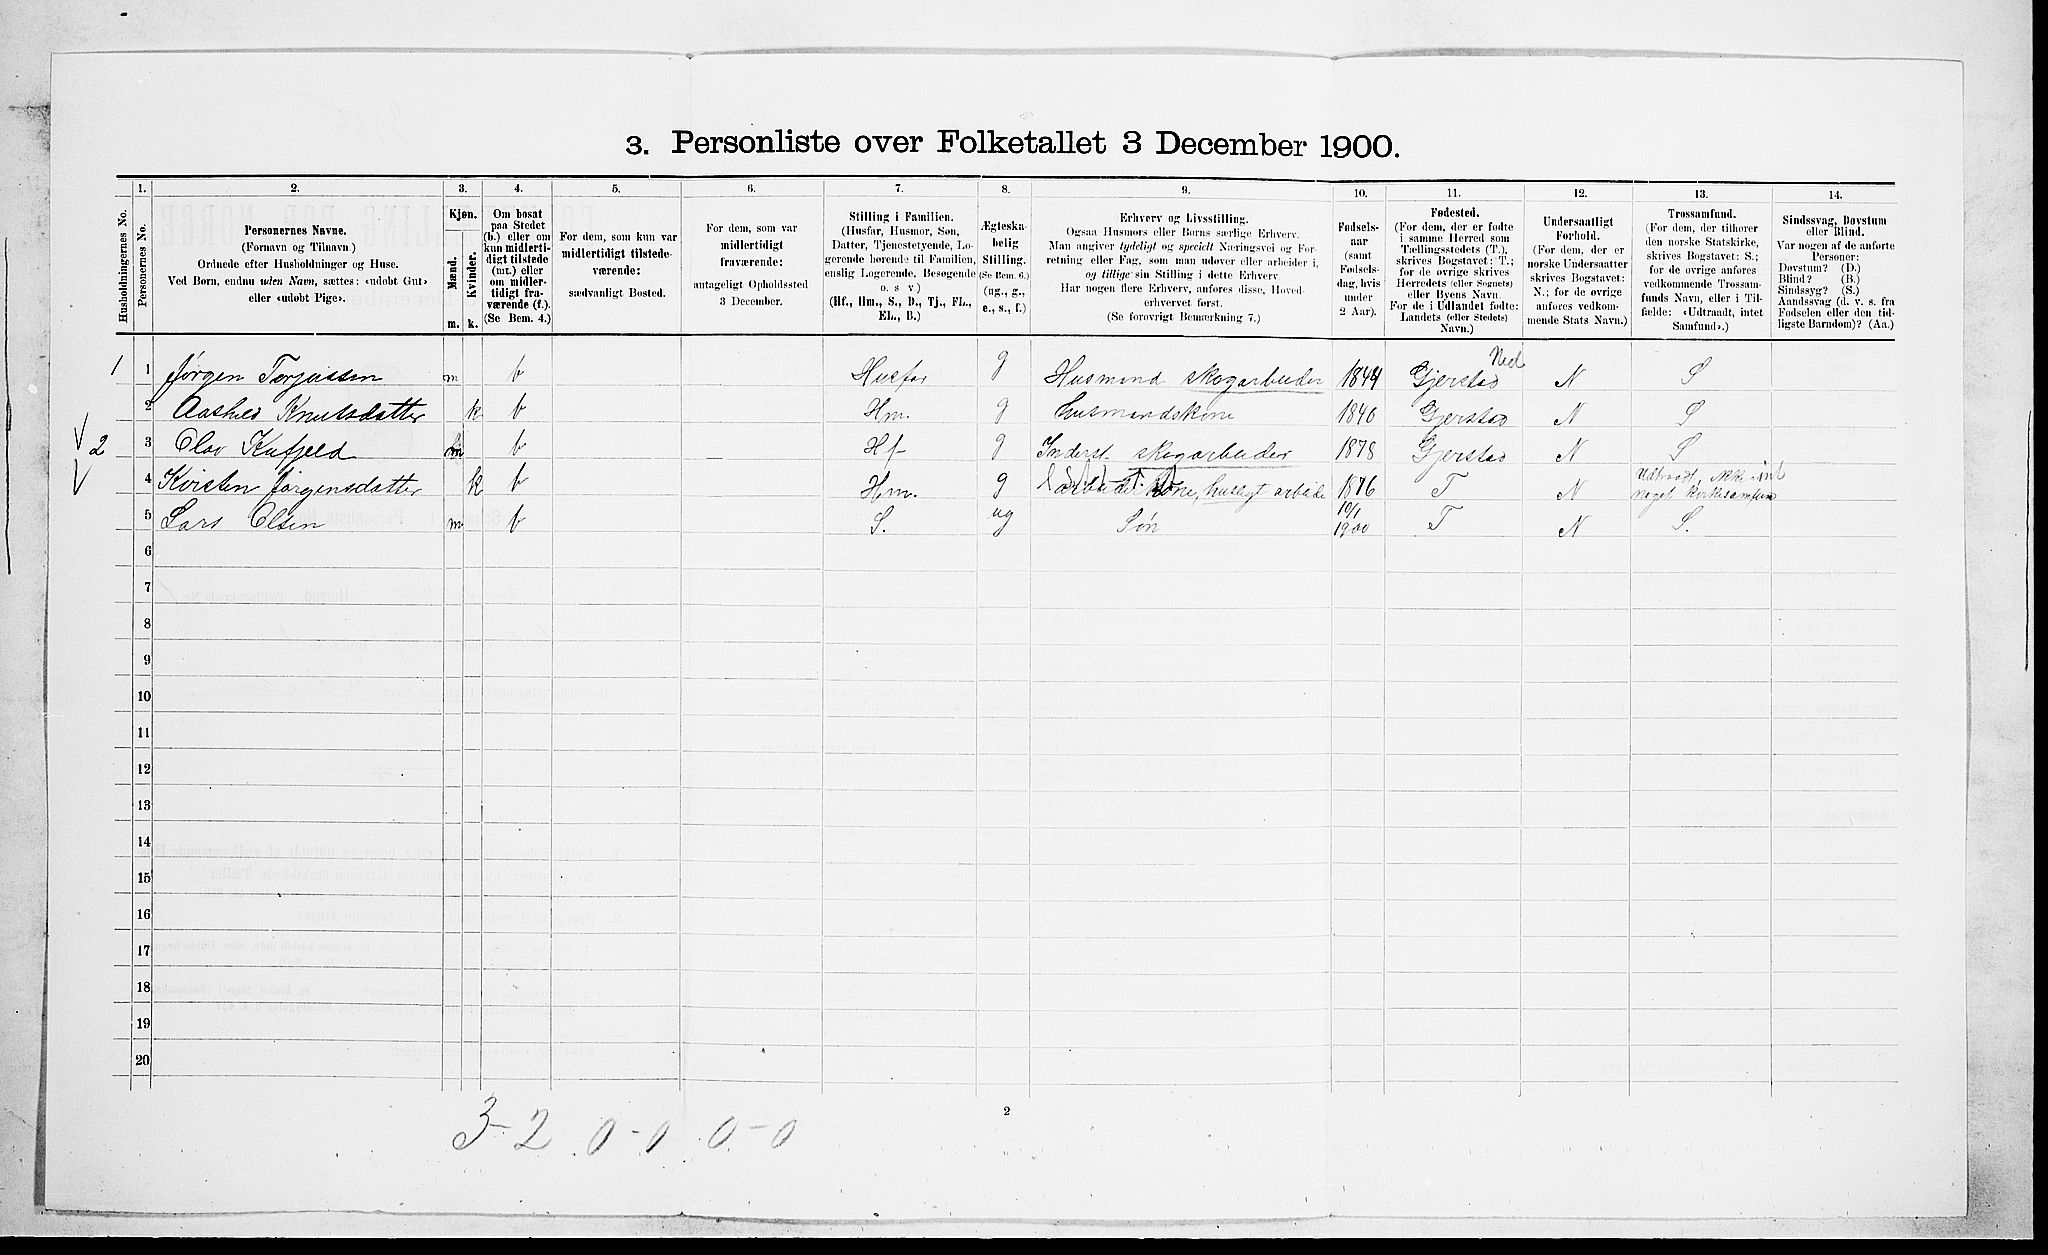 3. Personliste over Folketallet 3 December 1900.
Husholdningernes No.
1.
Personernes No.
2.
Personernes Navne.
(Fornavn og Tilnavn.)
Ordnede efter Husholdninger og Huse.
Ved Børn, endnu uden Navn, sættes: «udøbt Gut»
eller «udøbt Pige».
3.
Kjøn.
Mænd.
m.
Kvinder.
k.
4.
Om bosat
paa Stedet
(b.) eller om
kun midlerti-
digt tilstede
(mt.) eller
om midler-
tidigt fra-
værende (f.).
(Se Bem. 4.)
5.
For dem, som kun var
midlertidigt tilstede-
værende:
sædvanligt Bosted.
6.
For dem, som var
midlertidigt
fraværende:
antageligt Opholdssted
3 December.
7.
Stilling i Familien.
(Husfar, Husmor, Søn,
Datter, Tjenestetyende, Lo-
gerende hørende til Familien,
enslig Logerende, Besøgende
o. s. v.)
(Hf., Hm., S., D., Tj., FL.,
EL., B.)
8.
Ægteska-
belig
Stilling.
(Se Bem. 6.)
(ug., g.,
e., s., f.)
9.
Erhverv og Livsstilling.
Ogsaa Husmors eller Børns særlige Erhverv.
Man angiver tydeligt og specielt Næringsvei og For-
retning eller Fag, som man udøver eller arbeider i,
og tillige sin Stilling i dette Erhverv.
Har nogen flere Erhverv, anføres disse, Hoved-
erhvervet først.
(Se forøvrigt Bemærkning 7.)
10.
Fødsels-
aar
(samt
Fødsels-
dag, hvis
under
2 Aar).
11.
Fødested.
(For dem, der er fødte
i samme Herred som
Tællingsstedets (T.),
skrives Bogstavet: T.;
for de øvrige skrives
Herredets (eller Sognets)
eller Byens Navn.
For de i Udlandet fødte:
Landets (eller Stedets)
Navn.)
12.
Undersaatligt
Forhold.
(For dem, der er
norske Undersaatter
skrives Bogstavet:
N.; for de øvrige
anføres vedkom-
mende Stats Navn.)
13.
Trossamfund.
(For dem, der tilhører
den norske Statskirke,
skrives Bogstavet: S.;
for de øvrige anføres
vedkommende Trossam-
funds Navn, eller i Til-
fælde: «Udtraadt, intet
Samfund».)
14.
Sindssvag, Døvstum
eller Blind.
Var nogen af de anførte
Personer:
Døvstum? (D.)
Blind? (B.)
Sindssyg? (S.)
Aandssvag (d. v. s. fra
Fødselen eller den tid-
ligste Barndom)? (Aa.)
1 1 Jørgen Terjussen m b Husfar g Husmand skogarbeider 1844 Gjerstad Ned N S
2 Aashild Knutsdatter k b Hm. g husmandskone 1840 Gjerstad N S
2 3 Olav Kufjeld m b Hf g Inderst skogarbeider 1878 Gjerstad N S
4 Kirsten Jørgensdatter k b Hm. g kone, husligt arbeide 1876 T N Udtraadt, ikke
noget kirkesamfun
5 Lars Olsen m b S. ug Søn 10/1
1900 T N S.
6
7
8
9
10
11
12
13
14
15
16
17
18
19
20
2
3-2 0-0 0-0